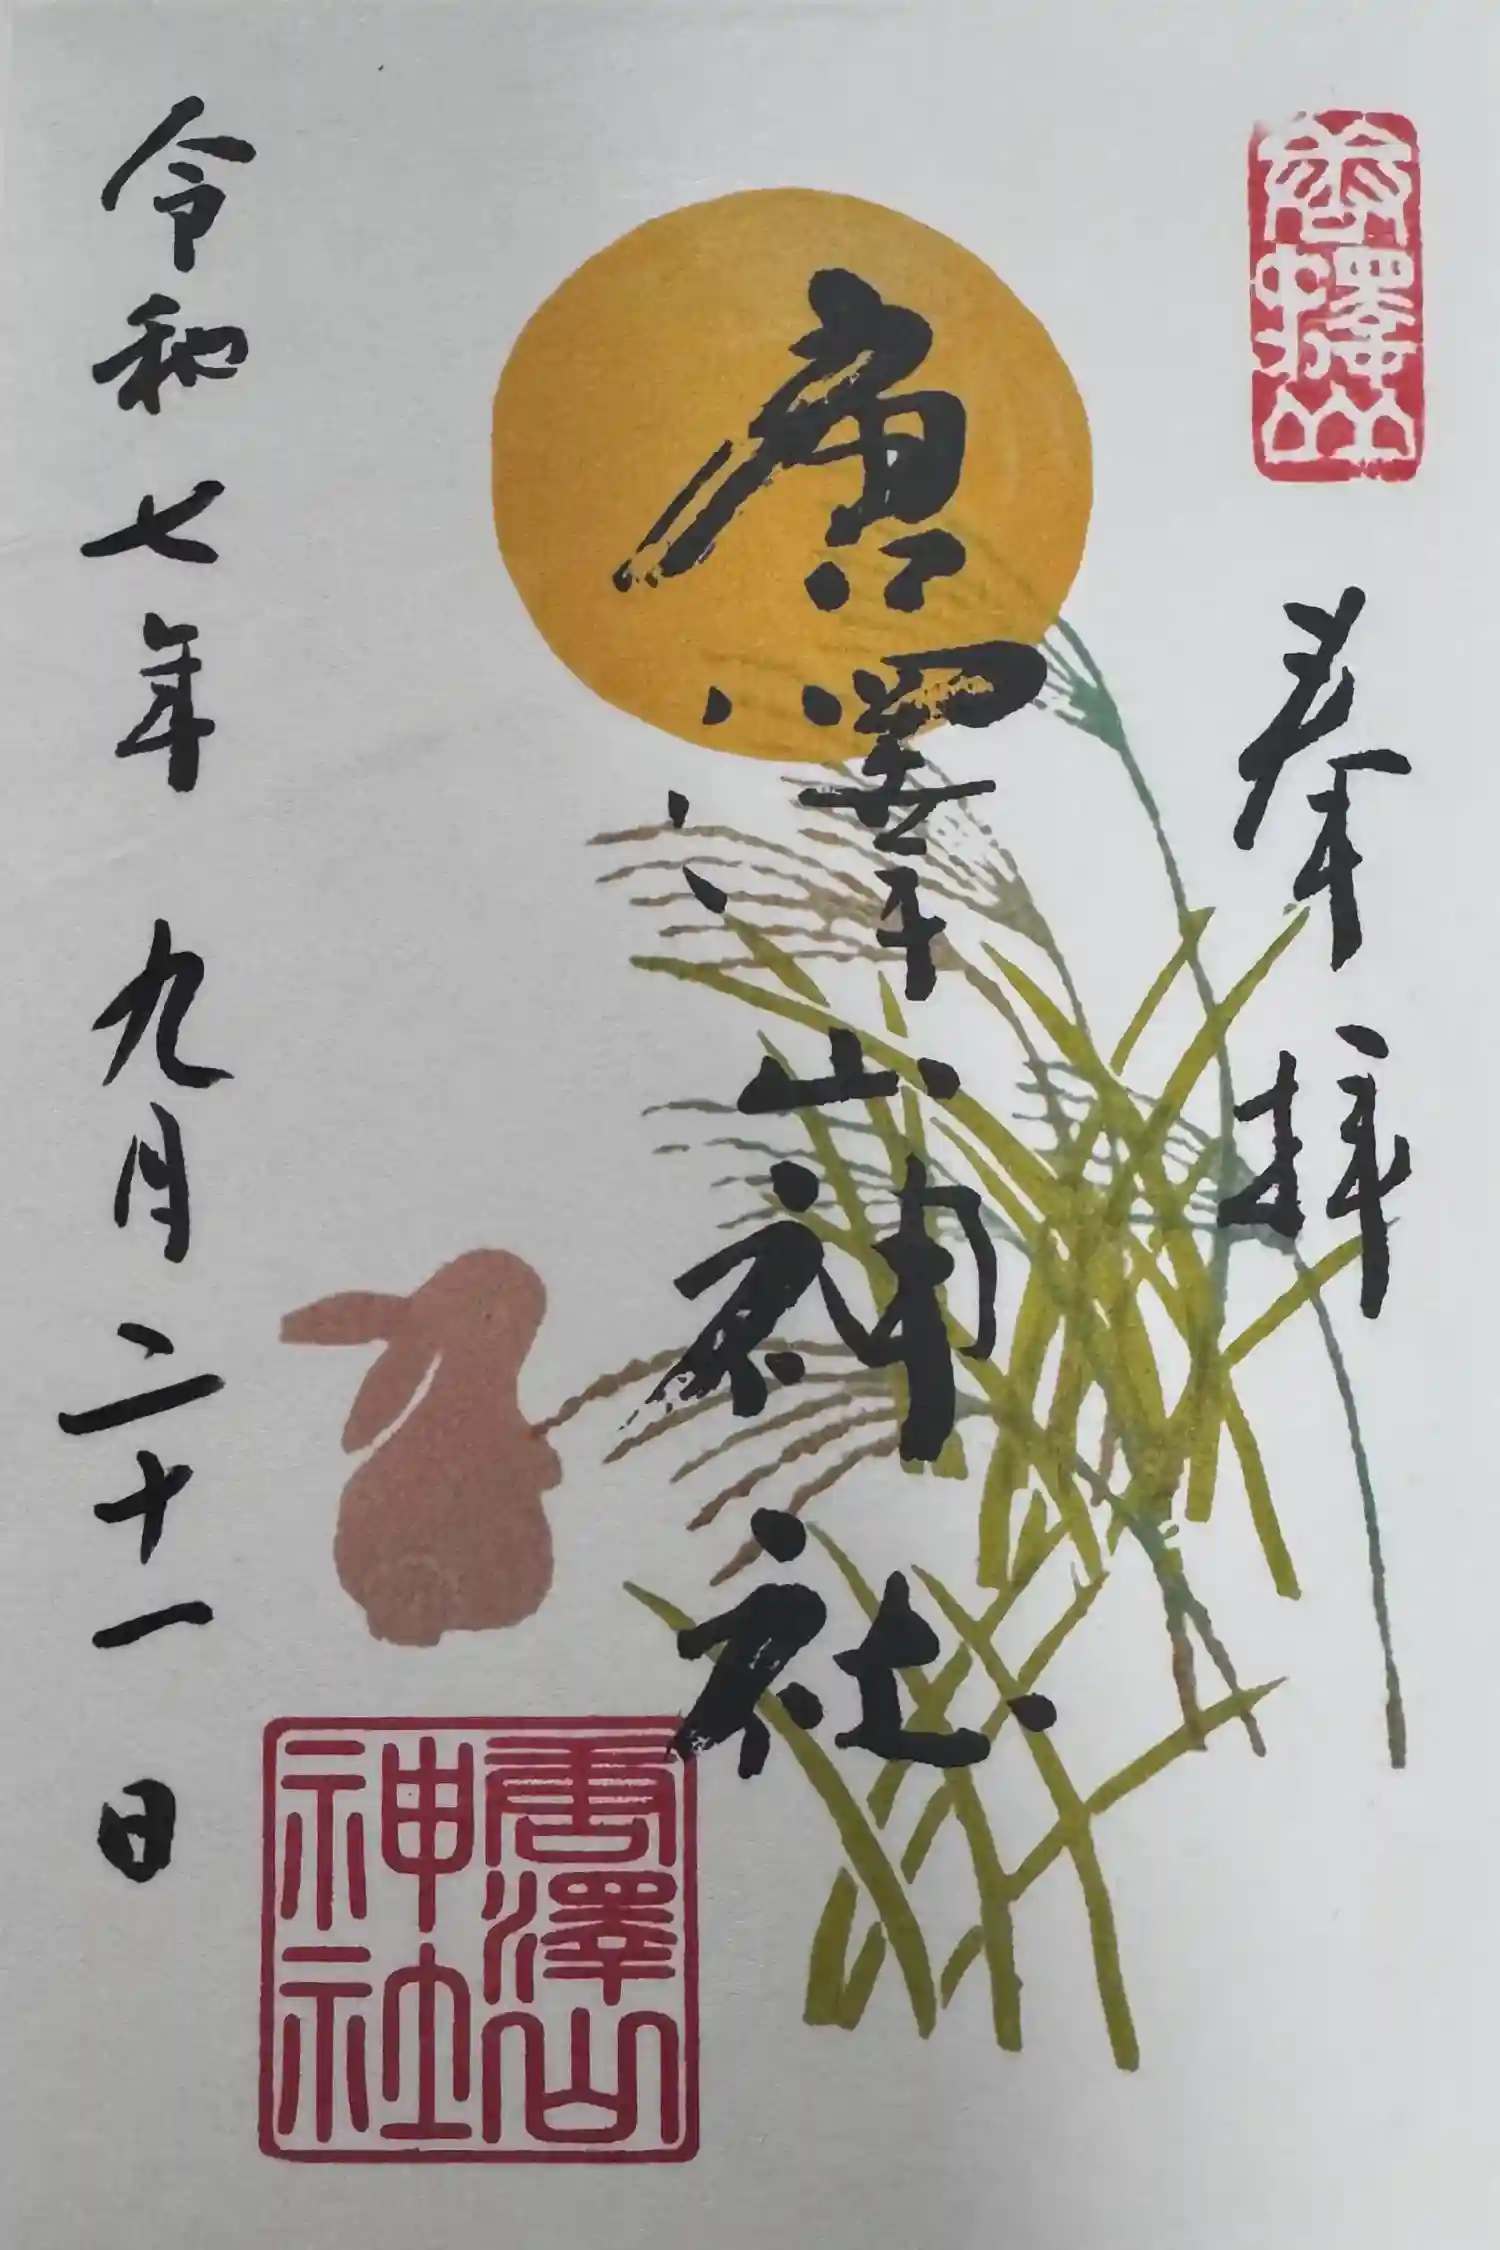 唐澤山
奉拝
唐澤山神社
唐澤山
神社
令和七年九月二十一日